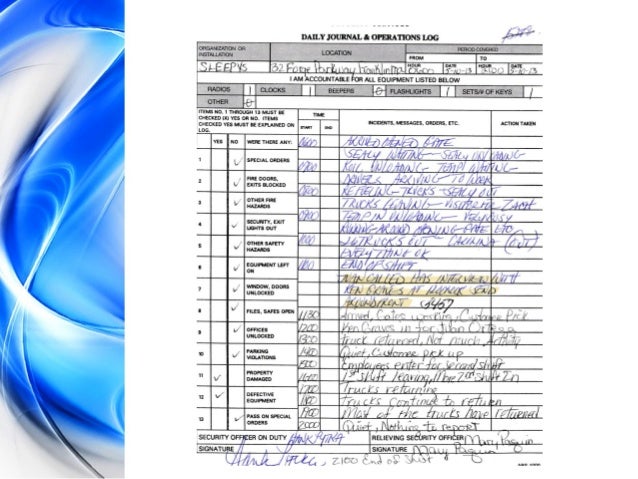 DAILY JOURNAL & OPERATIONS LOG
ORGANIZATION OR INSTALLATION
LOCATION
PERIOD COVERED
FROM
TO
HOUR DATE
HOUR DATE
SLEEPYS
32 Forge Parkway Franklin Ma 0600 5-10-13 2100 5-10-13
I AM ACCOUNTABLE FOR ALL EQUIPMENT LISTED BELOW
RADIOS 1 CLOCKS 1 BEEPERS FLASHLIGHTS 1 SETS/# OF KEYS 1
OTHER
ITEMS NO. 1 THROUGH 13 MUST BE CHECKED (X) YES OR NO. ITEMS CHECKED YES MUST BE EXPLAINED ON LOG.
TIME
START END
INCIDENTS, MESSAGES, ORDERS, ETC.
ACTION TAKEN
YES NO WERE THERE ANY:
1 SPECIAL ORDERS
2 FIRE DOORS, EXITS BLOCKED
3 OTHER FIRE HAZARDS
4 SECURITY, EXIT LIGHTS OUT
5 OTHER SAFETY HAZARDS
6 EQUIPMENT LEFT ON
7 WINDOW, DOORS UNLOCKED
8 FILES, SAFES OPEN
9 OFFICES UNLOCKED
10 PARKING VIOLATIONS
11 PROPERTY DAMAGED
12 DEFECTIVE EQUIPMENT
13 PASS ON SPECIAL ORDERS
0600 ARRIVED OPENED GATE
SEALY WAITING - SEALY UNLOADING
0700 UNLOADING - TEMP WAITING
DRIVERS ARRIVING TO WORK
0800 REFUELING TRUCKS - SEALY OUT
TRUCKS LEAVING - VISITOR FOR ZACH
0900 TEMP IN UNLOADING - VERY BUSY
RUNNING AROUND OPENING GATE ETC
1000 TRUCKS OUT (OUT)
EVERYTHING OK
1100 END OF SHIFT
CALLED HAS INTERVIEW WITH
KEN GRAVES AT SEND
AROUND FRONT
1130 Arrived, Gates working, Customer Pick
1200 Ken Graves in for Juan Ortega
1300 Truck returned, Not much Activity
1400 Quiet, Customer pick up
1500 Employees enter for second shift
1600 1st shift leaving, More 2nd shift In
1700 Trucks returning
1800 Trucks continue to return
1900 Most of the trucks have returned
2000 Quiet, Nothing to report
SECURITY OFFICER ON DUTY HANK
RELIEVING SECURITY OFFICER Mary Paquin
SIGNATURE Hank
SIGNATURE Mary Paquin
2100 End of Shift